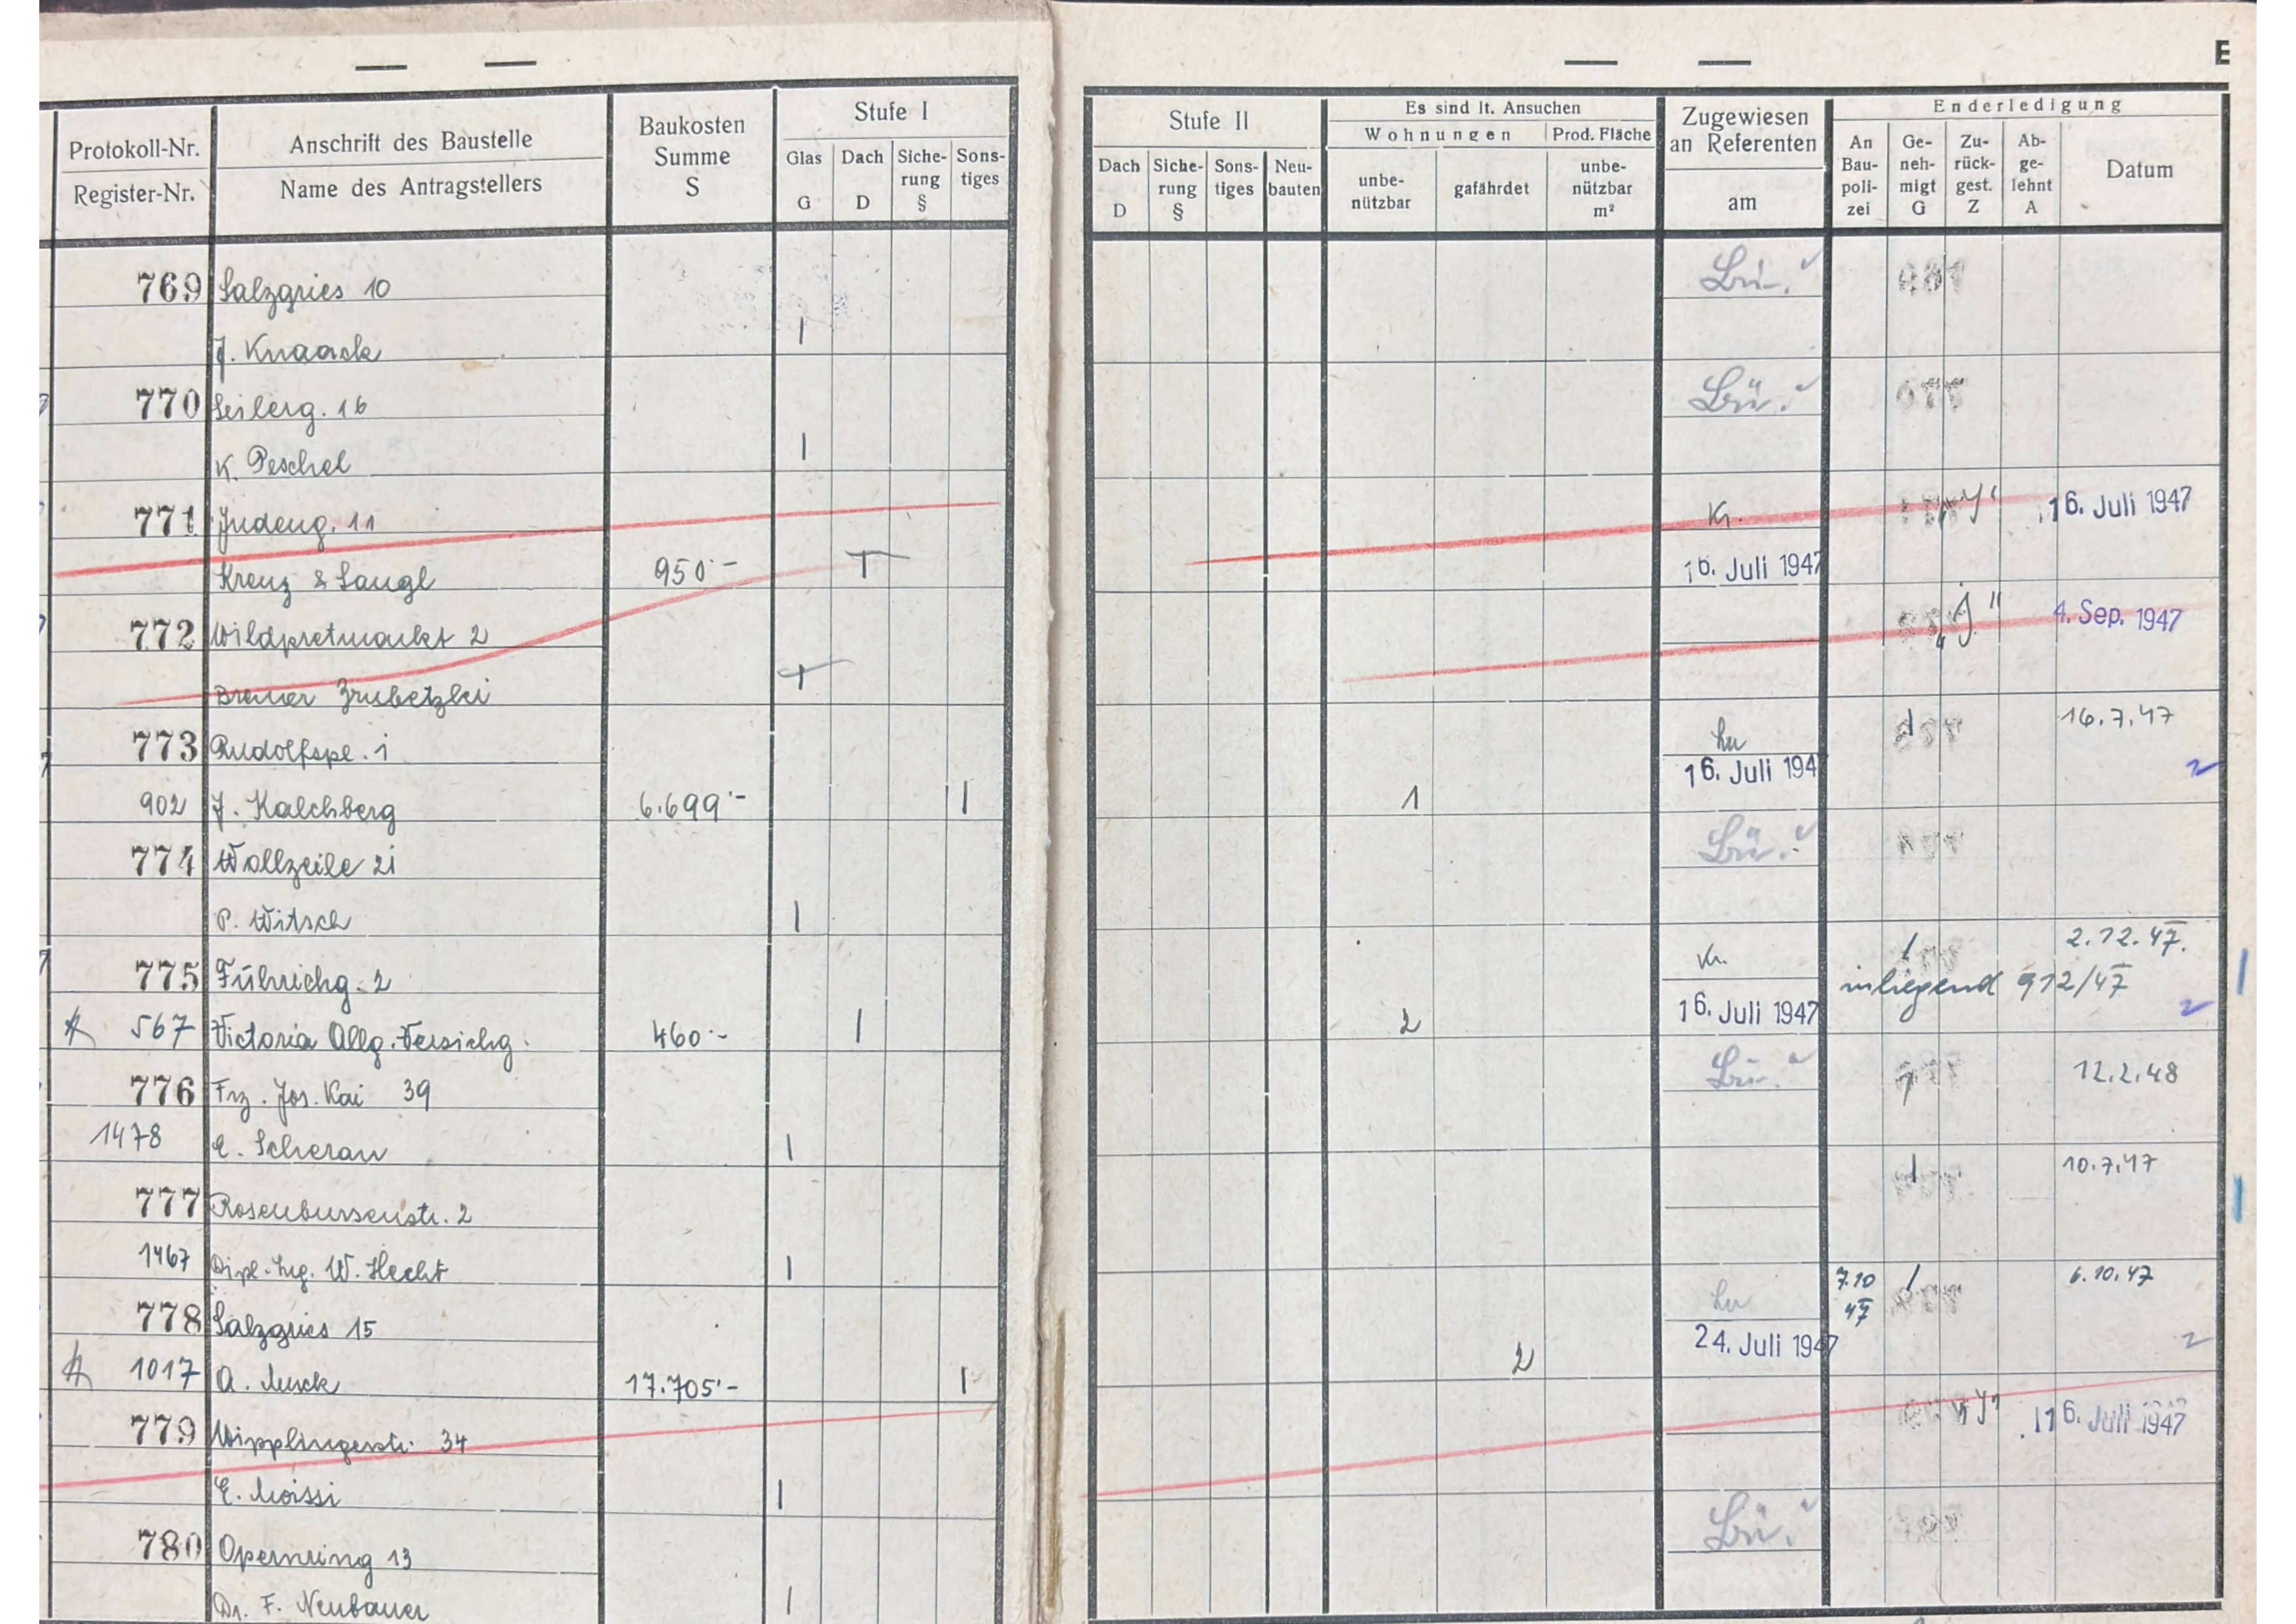 E
Protokoll-Nr.
Register-Nr.
Anschrift des Baustelle
Name des Antragstellers
Baukosten
Summe
S
Stufe I
Glas
G
Dach
D
Siche-
rung
§
Sons-
tiges
Stufe II
Dach
D
Siche-
rung
§
Sons-
tiges
Neu-
bauten
Es sind lt. Ansuchen
Wohnungen
unbe-
nützbar
gafährdet
Prod. Fläche
unbe-
nützbar
m²
Zugewiesen
an Referenten
am
Enderledigung
An
Bau-
poli-
zei
Ge-
neh-
migt
G
Zu-
rück-
gest.
Z
Ab-
ge-
lehnt
A
Datum
769 Salzgries 10 Lü.
J. Knaack I
770 Seilerg. 16 Lü.
K. Peschel I
771 Judeng. 11 Kr. „J“ 16. Juli 1947
Kreuz & Laugl 950·- I 16. Juli 1947
772 Wildpretmarkt 2 „J“ 4. Sep. 1947
Breuer Zrubetzki I
773 Rudolfspl. 1 I 16.7.47
902 J. Kalchberg 6.699·- I 1 16. Juli 194 2
774 Wollzeile 21 Lü.
P. Witsch I
775 Führichg. 2 Kr. I 2.12.47.
inliegend 912/47
567 Victoria Allg. Versichg. 460·- I 2 16. Juli 1947 2
776 Frz. Jos. Kai 39 Lü. 1 12.2.48
1478 E. Scherau I
777 Rosenbursenstr. 2 I 10.7.47
1467 Dipl.-Ing. W. Hecht I
778 Salzgries 15 7.10 47 I 6.10.47
1017 A. Musck 17.705·- I 2 24. Juli 1947 2
779 Wipplingerstr. 34 „J“ 16. Juli 1947
E. Moissi I
780 Opernring 13 Lü.
Dr. F. Neubauer I